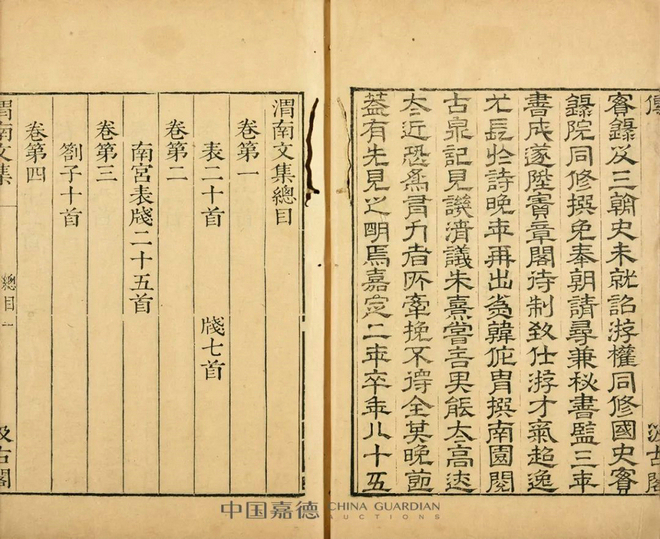 傳
汲古閣
實錄及三朝史未就詔游權同修國史實
錄院同修撰免奉朝請尋兼秘書監三年
書成遂陞寶章閣待制致仕游才氣超逸
尤長於詩晚年再出為韓侂胄撰南園閱
古泉記見譏清議朱熹嘗言其能太高迹
太近恐為有力者所牽挽不得全其晚節
蓋有先見之明焉嘉定二年卒年八十五
渭南文集總目
卷第一
表二十首 牋七首
卷第二
南宮表牋二十五首
卷第三
劄子十首
卷第四
渭南文集
總目 一
汲古閣
中国嘉德 CHINA GUARDIAN
AUCTIONS